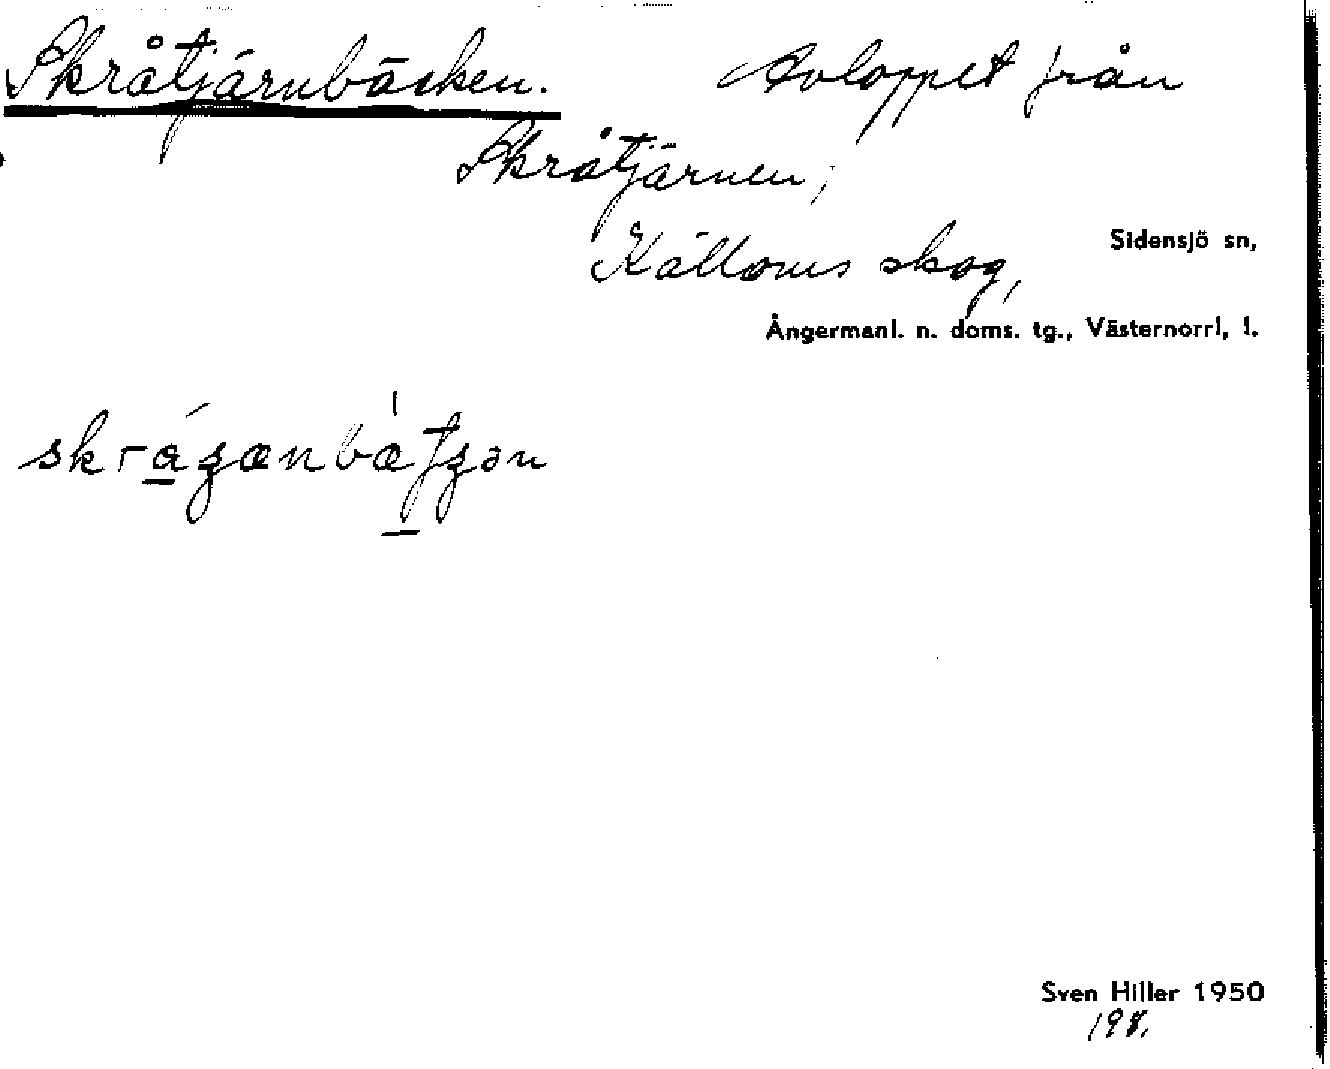 Skråtjärnbäcken. Avloppet från
Skråtjärnen,
Källoms skog,
Sidensjö sn,
Ångermanl. n. doms. tg., Västernorrl. l.
Sven Hiller 1950
198.